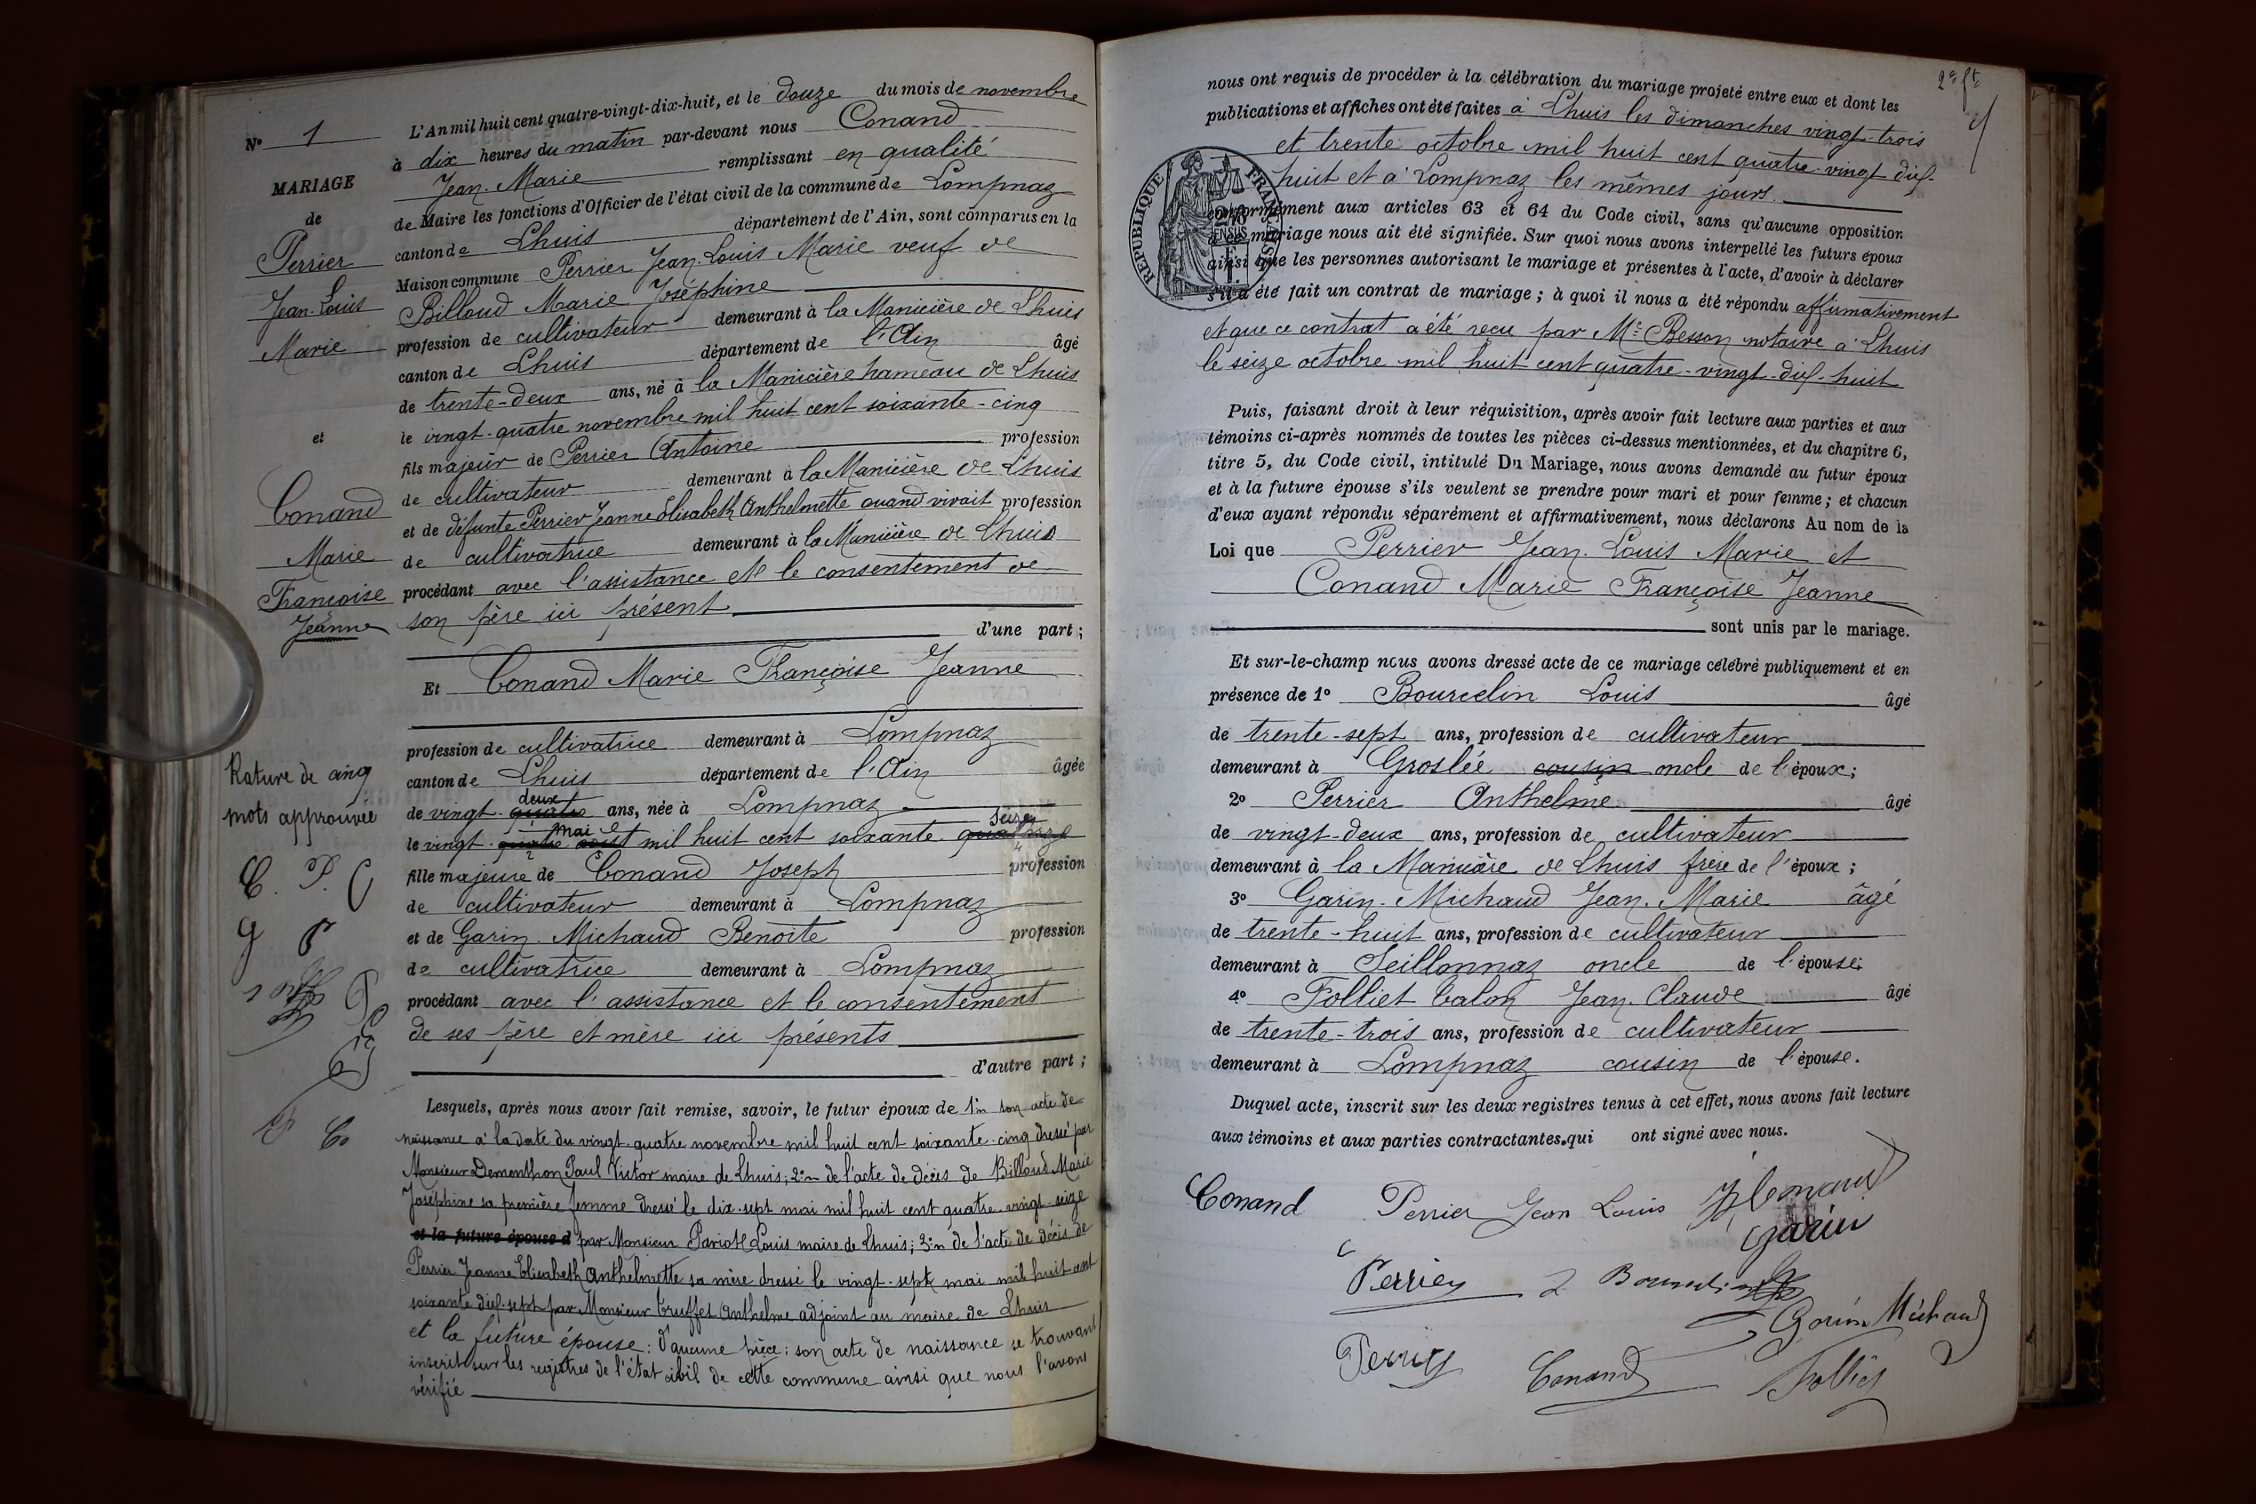 N° 1
MARIAGE
de
Perrier
Jean-Louis
Marie
et
Conand
Marie
Françoise
Jeanne
Rature de cinq
mots approuvée
C. P. C
L'An mil huit cent quatre-vingt-dix-huit, et le douze du mois de novembre
à dix heures du matin par-devant nous Conand
Jean-Marie remplissant en qualité
de Maire les fonctions d'Officier de l'état civil de la commune de Lompnaz
canton de Lhuis département de l'Ain, sont comparus en la
Maison commune Perrier Jean-Louis Marie veuf de
Billoud Marie Joséphine
profession de cultivateur demeurant à la Manicière de Lhuis
canton de Lhuis département de l'Ain âgé
de trente-deux ans, né à la Manicière hameau de Lhuis
le vingt-quatre novembre mil huit cent soixante-cinq
fils majeur de Perrier Antoine profession
de cultivateur demeurant à la Manicière de Lhuis
et de défunte Perrier Jeanne Elisabeth Anthelmette quand vivait profession
de cultivatrice demeurant à la Manicière de Lhuis
procédant avec l'assistance et le consentement de
son père ici présent
d'une part;
Et Conand Marie Françoise Jeanne
profession de cultivatrice demeurant à Lompnaz
canton de Lhuis département de l'Ain âgée
deux
de vingt-quatre ans, née à Lompnaz
mai seize
le vingt-quatre août mil huit cent soixante-quatorze
fille majeure de Conand Joseph profession
de cultivateur demeurant à Lompnaz
et de Garin-Michaud Benoîte profession
de cultivatrice demeurant à Lompnaz
procédant avec l'assistance et le consentement
de ses père et mère ici présents
d'autre part;
Lesquels, après nous avoir fait remise, savoir, le futur époux de 1°n son acte de
naissance à la date du vingt-quatre novembre mil huit cent soixante-cinq dressé par
Monsieur Demonthon Paul Victor maire de Lhuis; 2°n de l'acte de décès de Billoud Marie
Joséphine sa première femme dressé le dix-sept mai mil huit cent quatre-vingt-seize
et la future épouse d par Monsieur Louis maire de Lhuis; 3°n de l'acte de décès de
Perrier Jeanne Elisabeth Anthelmette sa mère dressé le vingt-sept mai mil huit cent
soixante dix-sept par Monsieur Truffet Anthelme adjoint au maire de Lhuis
et la future épouse: d'aucune pièce: son acte de naissance se trouvant
inscrit sur les registres de l'état civil de cette commune ainsi que nous l'avons
vérifié
nous ont requis de procéder à la célébration du mariage projeté entre eux et dont les
publications et affiches ont été faites à Lhuis les dimanches vingt-trois
et trente octobre mil huit cent quatre-vingt dix-
huit et à Lompnaz les mêmes jours.
RÉPUBLIQUE FRANÇAISE
conformément aux articles 63 et 64 du Code civil, sans qu'aucune opposition
à ce mariage nous ait été signifiée. Sur quoi nous avons interpellé les futurs époux
ainsi que les personnes autorisant le mariage et présentes à l'acte, d'avoir à déclarer
s'il a été fait un contrat de mariage; à quoi il nous a été répondu affirmativement
et que ce contrat a été reçu par Me Besson notaire à Lhuis
le seize octobre mil huit cent quatre-vingt-dix-huit
Puis, faisant droit à leur réquisition, après avoir fait lecture aux parties et aux
témoins ci-après nommés de toutes les pièces ci-dessus mentionnées, et du chapitre 6,
titre 5, du Code civil, intitulé Du Mariage, nous avons demandé au futur époux
et à la future épouse s'ils veulent se prendre pour mari et pour femme; et chacun
d'eux ayant répondu séparément et affirmativement, nous déclarons Au nom de la
Loi que Perrier Jean-Louis Marie et
Conand Marie Françoise Jeanne
sont unis par le mariage.
Et sur-le-champ nous avons dressé acte de ce mariage célébré publiquement et en
présence de 1° Bourcelin Louis âgé
de trente-sept ans, profession de cultivateur
demeurant à Groslée cousin oncle de l'époux;
2° Perrier Anthelme âgé
de vingt-deux ans, profession de cultivateur
demeurant à la Manicière de Lhuis frère de l'époux;
3° Garin-Michaud Jean-Marie âgé
de trente-huit ans, profession de cultivateur
demeurant à Seillonnaz oncle de l'épouse;
4° Folliet Calon Jean-Claude âgé
de trente-trois ans, profession de cultivateur
demeurant à Lompnaz cousin de l'épouse.
Duquel acte, inscrit sur les deux registres tenus à cet effet, nous avons fait lecture
aux témoins et aux parties contractantes. qui ont signé avec nous.
Conand Perrier Jean Louis Conand
Garin
Perrier
Garin Michaud
Perrier Conand Folliet